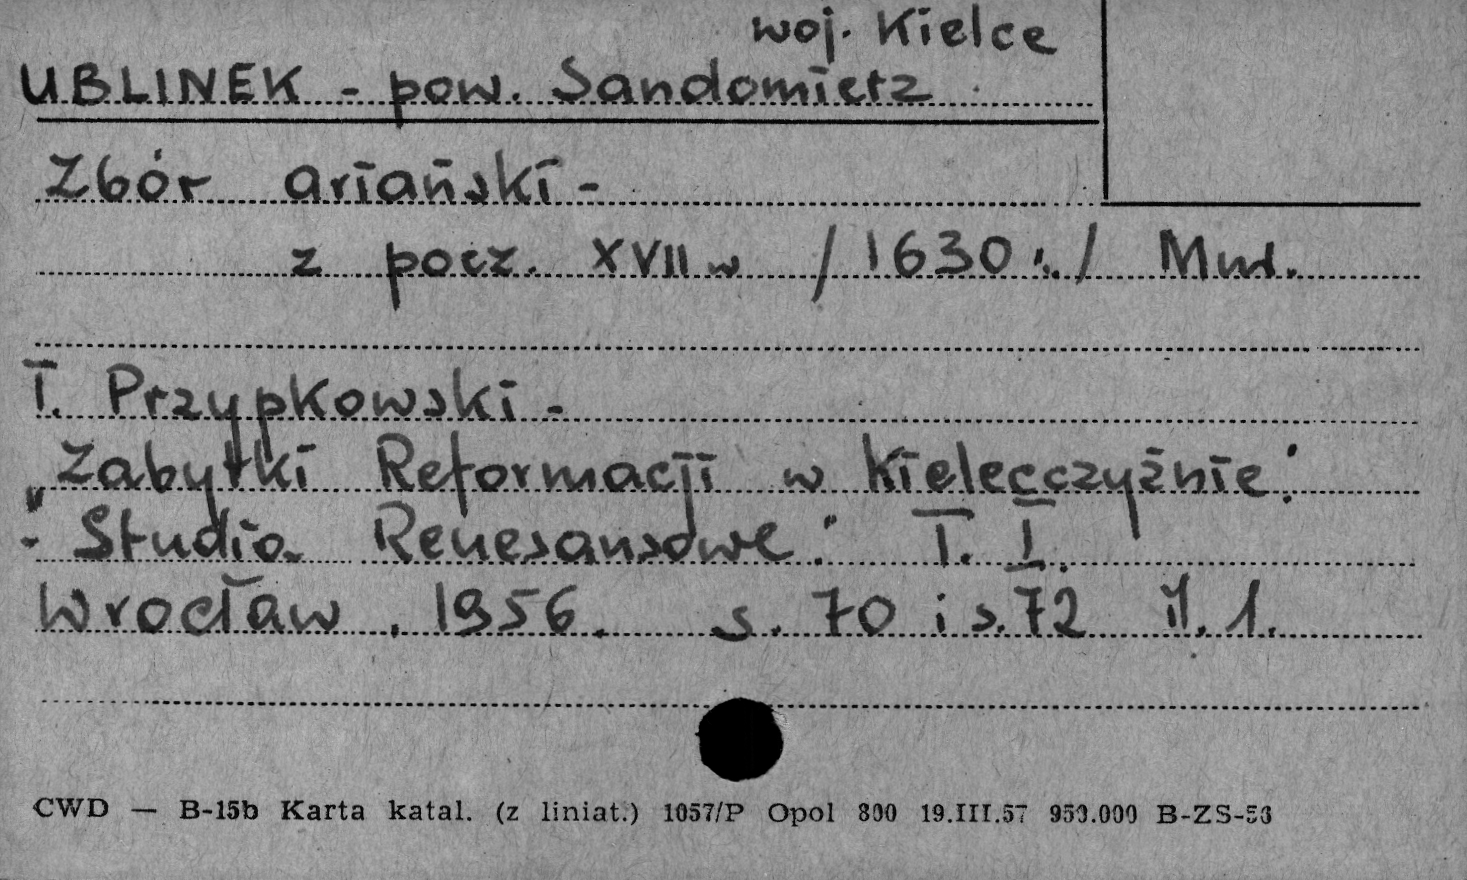 woj. Kielce
UBLINEK - pow. Sandomierz
Zbór ariański -
z pocz. XVII w /1630 r./ Mur.
T. Przypkowski -
"Zabytki Reformacji w Kielecczyźnie"
: "Studia Renesansowe". T. I.
Wrocław, 1956. s. 70 i s. 72 il. 1.
CWD — B-15b Karta katal. (z liniat.) 1057/P Opol 800 19.III.57 950.000 B-ZS-56